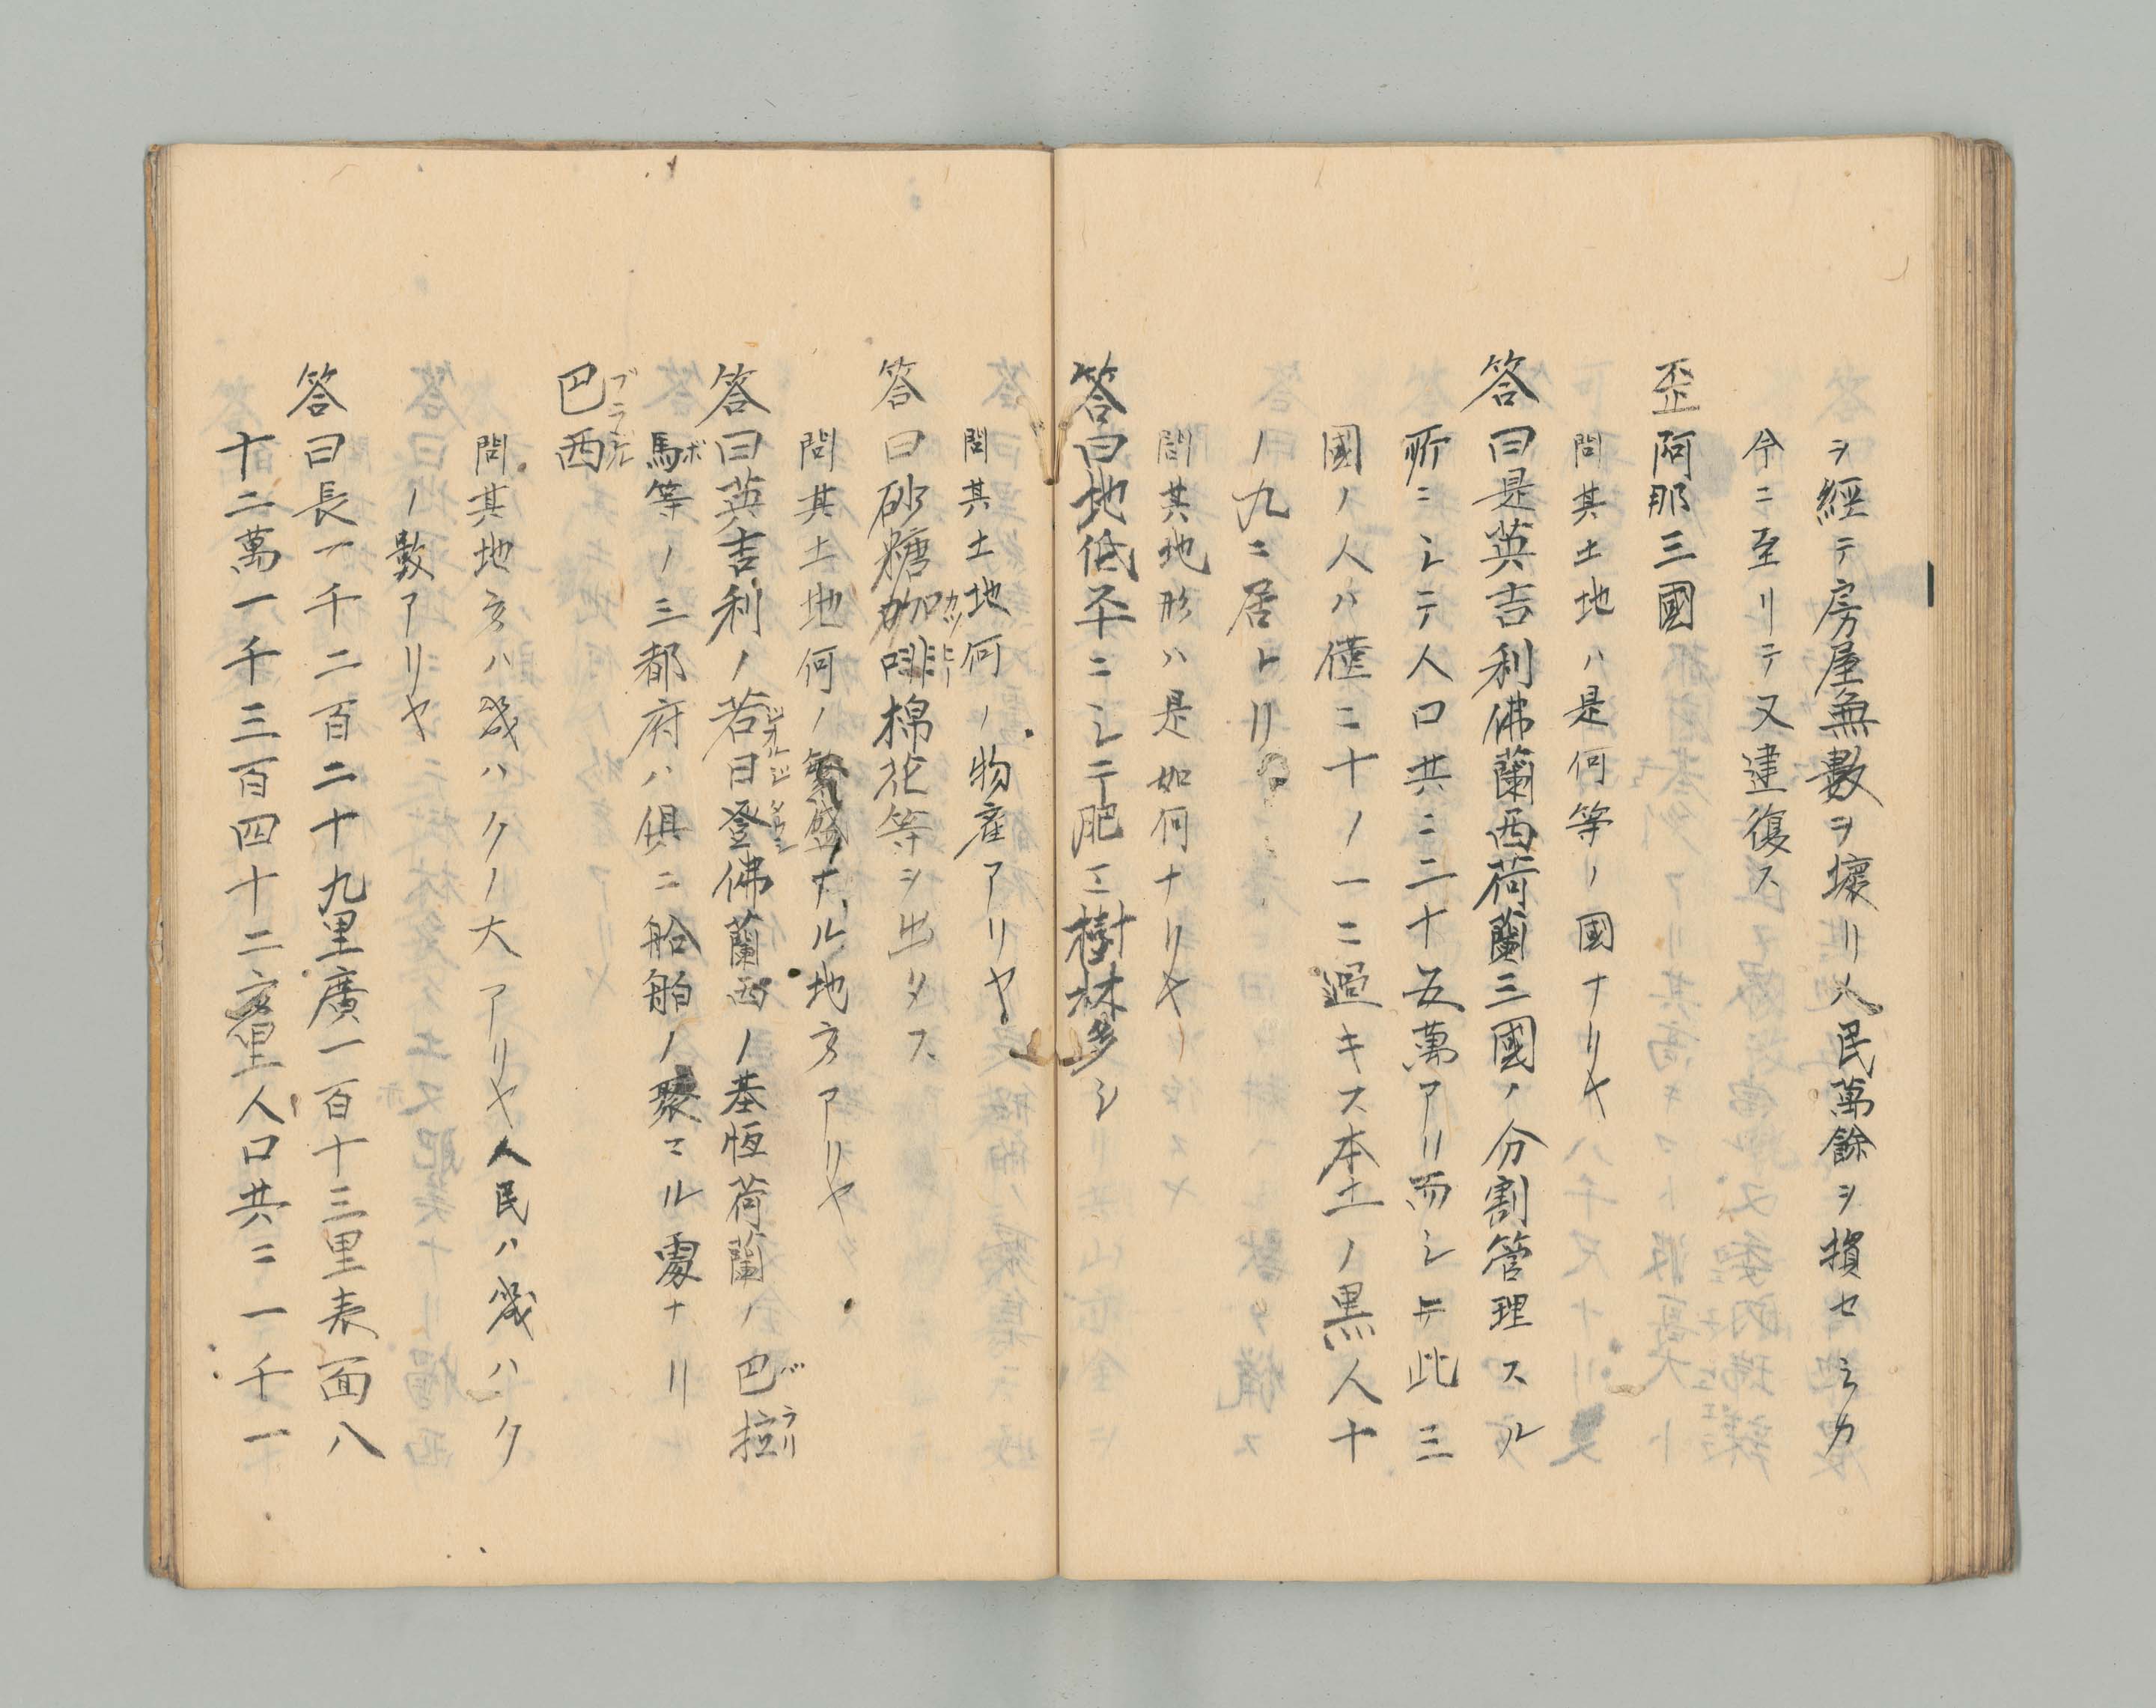 ヲ經テ房屋無數ヲ壞リ人民萬餘ヲ損セシカ
今ニ至リテ又建復ス
歪阿那三國
問其土地ハ是何等ノ國ナリヤ
答曰是英吉利佛蘭西荷蘭三國ノ分割管理スル
所ニシテ人口共ニ二十五萬アリ而シテ此三
國ノ人ハ僅ニ十ノ一ニ過キス本土ノ黒人十
ノ九ニ居レリ
問其地形ハ是如何ナリヤ
答曰地低平ニシテ肥エ樹林多シ
問其土地何ノ物産アリヤ
答曰砂糖咖啡棉花等ヲ出タス
カツヒー
問其土地何ノ繁盛ナル地方アリヤ
答曰英吉利ノ若日登佛蘭西ノ基恆荷蘭ノ巴拉
ジオルジタウン
バラリ
馬等ノ三都府ハ俱ニ船舶ノ聚マル處ナリ
ボ
巴西
ブラジル
問其地方ハ幾ハクノ大アリヤ人民ハ幾ハク
ノ數アリヤ
答曰長一千二百二十九里廣一百十三里表面八
十二萬一千三百四十二方里人口共ニ一千一